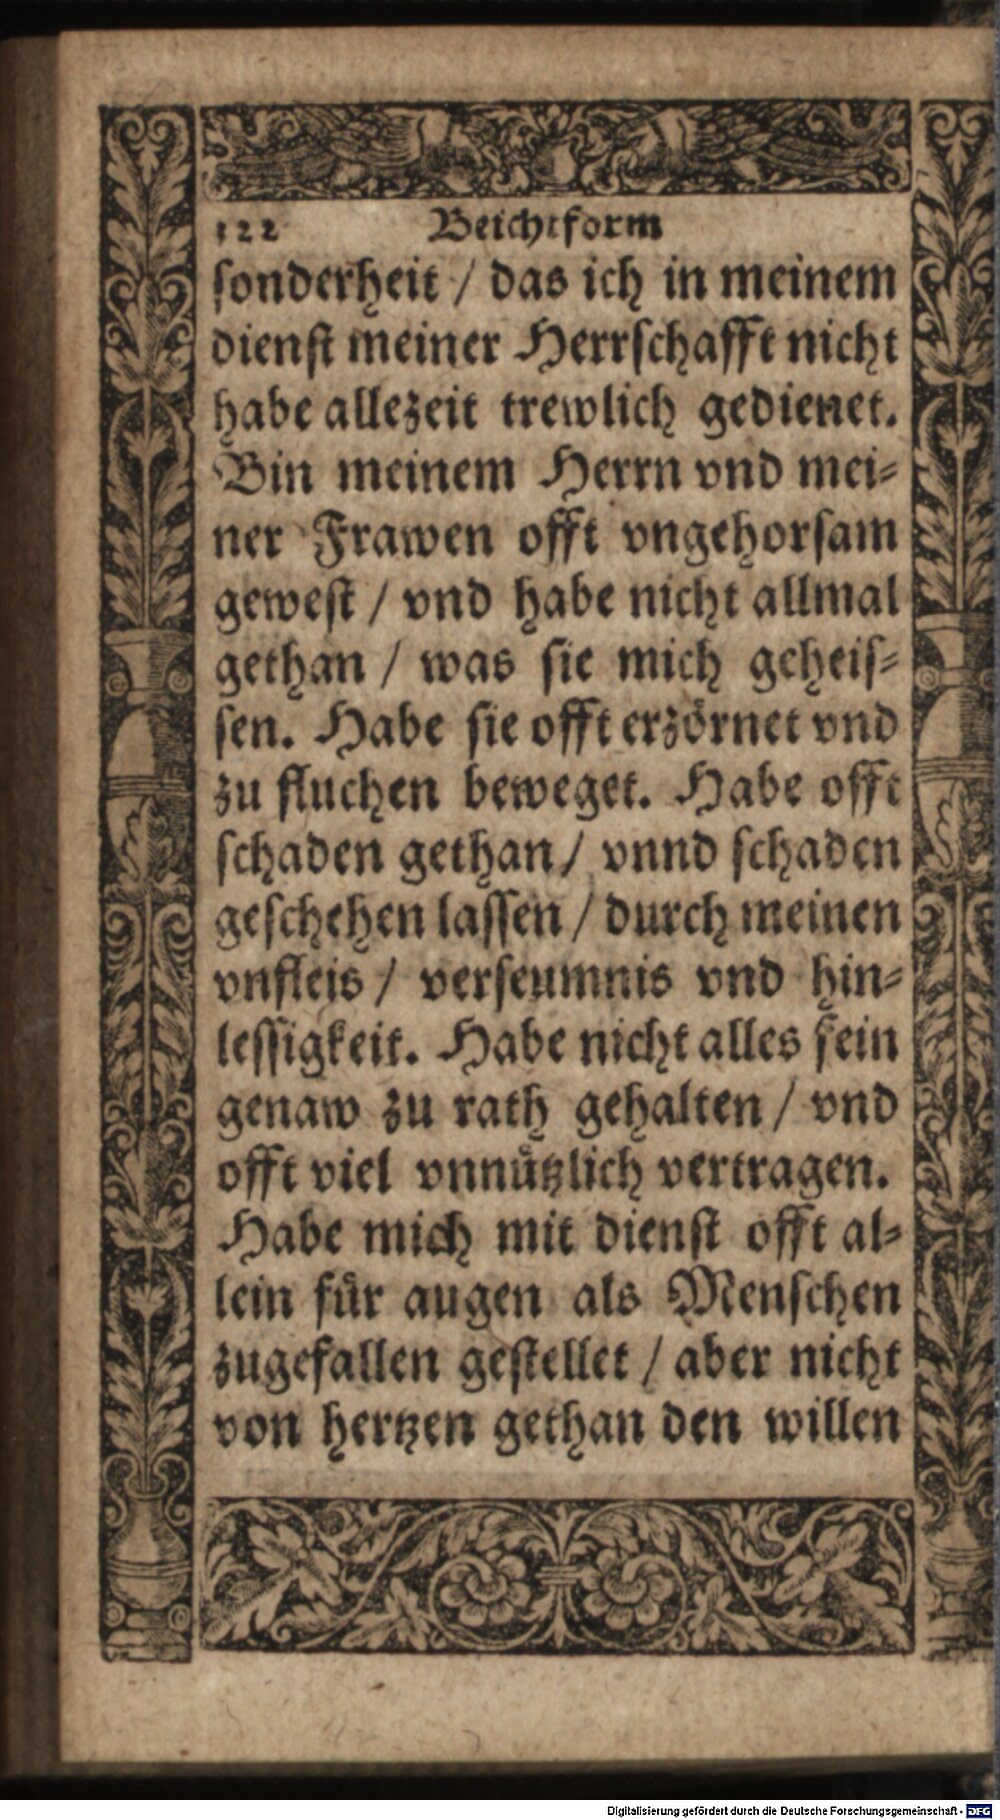 122 Beichtform
ſonderheit / das ich in meinem
dienſt meiner Herrſchafft nicht
habe allezeit trewlich gedienet.
Bin meinem Herrn vnd mei⸗
ner Frawen offt vngehorſam
geweſt / vnd habe nicht allmal
gethan / was ſie mich geheiſ⸗
ſen. Habe ſie offt erzörnet vnd
zu fluchen beweget. Habe offt
ſchaden gethan / vnnd ſchaden
geſchehen laſſen / durch meinen
vnfleis / verſeumnis vnd hin⸗
leſſigkeit. Habe nicht alles fein
genaw zu rath gehalten / vnd
offt viel vnnuͤtzlich vertragen.
Habe mich mit dienſt offt al⸗
lein fuͤr augen als Menſchen
zugefallen geſtellet / aber nicht
von hertzen gethan den willen
Digitalisierung gefördert durch die Deutsche Forschungsgemeinschaft - DFG